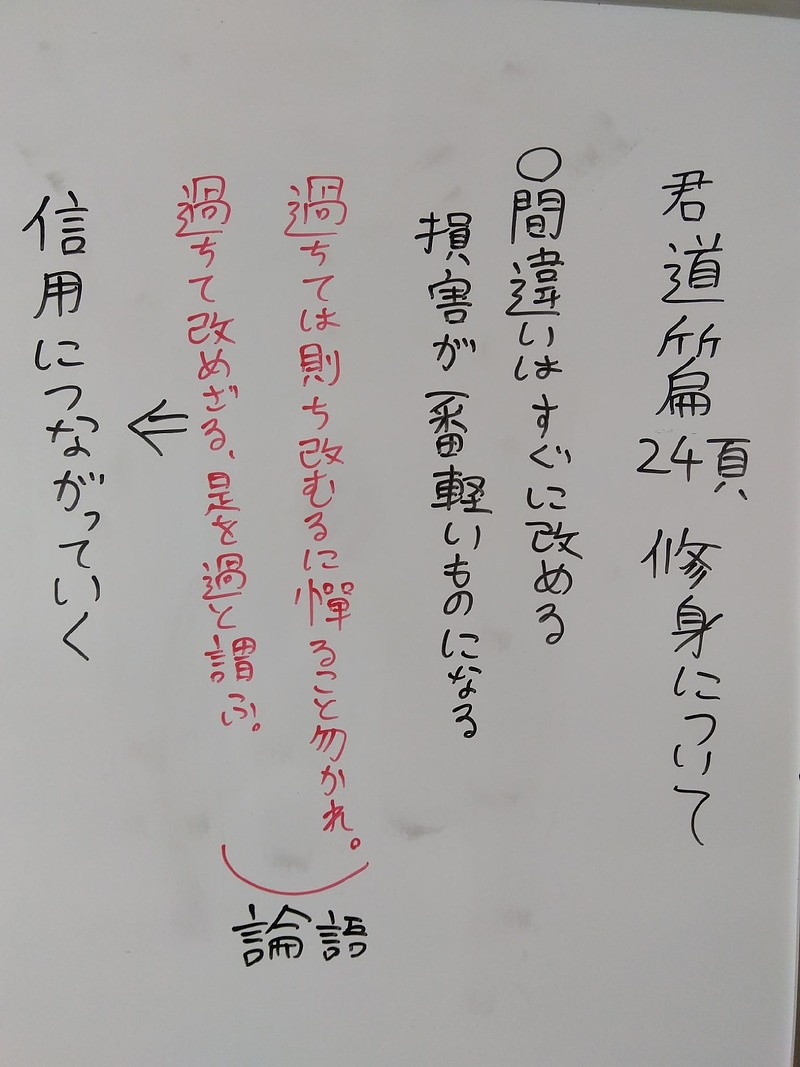 君道篇24頁 修身について
○間違いはすぐに改める
損害が一番軽いものになる
過ちては則ち改むるに憚ること勿かれ。
過ちて改めざる、是を過と謂ふ。
論語
⇐
信用につながっていく